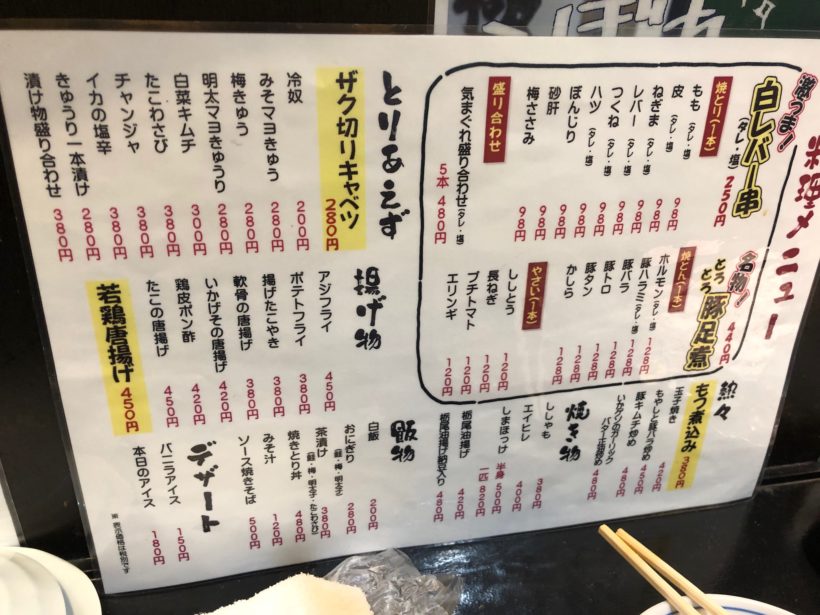 料理メニュー
激うま!
白レバー串
(タレ・塩)
250円
焼とり(1本)
もも(タレ・塩) 98円
皮(タレ・塩) 98円
ねぎま(タレ・塩) 98円
レバー(タレ・塩) 98円
つくね(タレ・塩) 98円
ハツ(タレ・塩) 98円
ぼんじり 98円
砂肝 98円
梅ささみ 98円
盛り合わせ
気まぐれ盛り合わせ(タレ・塩)
5本 480円
名物!
とろとろ豚足煮
440円
焼とん(1本)
ホルモン(タレ・塩) 128円
豚ハラミ(タレ・塩) 128円
豚バラ 128円
豚トロ 128円
豚タン 128円
かしら 128円
やさい(1本)
ししとう 120円
長ねぎ 120円
プチトマト 120円
エリンギ 120円
とりあえず
ザク切りキャベツ 280円
冷奴 200円
みそマヨきゅう 280円
梅きゅう 280円
明太マヨきゅうり 280円
白菜キムチ 300円
たこわさび 380円
チャンジャ 380円
イカの塩辛 380円
きゅうり一本漬け 280円
漬け物盛り合わせ 380円
揚げ物
アジフライ 450円
ポテトフライ 380円
揚げたこやき 380円
軟骨の唐揚げ 380円
いかげその唐揚げ 420円
鶏皮ポン酢 420円
たこの唐揚げ 450円
若鶏唐揚げ 450円
熱々
もつ煮込み 380円
玉子焼き
もやしと豚バラ炒め 420円
豚キムチ炒め 450円
いかゲソのガーリックバター正油炒め 480円
焼き物
ししゃも 380円
エイヒレ 400円
しまほっけ 半身 500円
一匹 820円
栃尾油揚げ 420円
栃尾油揚げ納豆入り 480円
飯物
白飯 200円
おにぎり(鮭・梅・明太子) 280円
茶漬け(鮭・梅・明太子・たこわさび) 380円
焼きとり丼 480円
みそ汁 120円
ソース焼きそば 500円
デザート
バニラアイス 150円
本日のアイス 180円
※ 表示価格は税別です